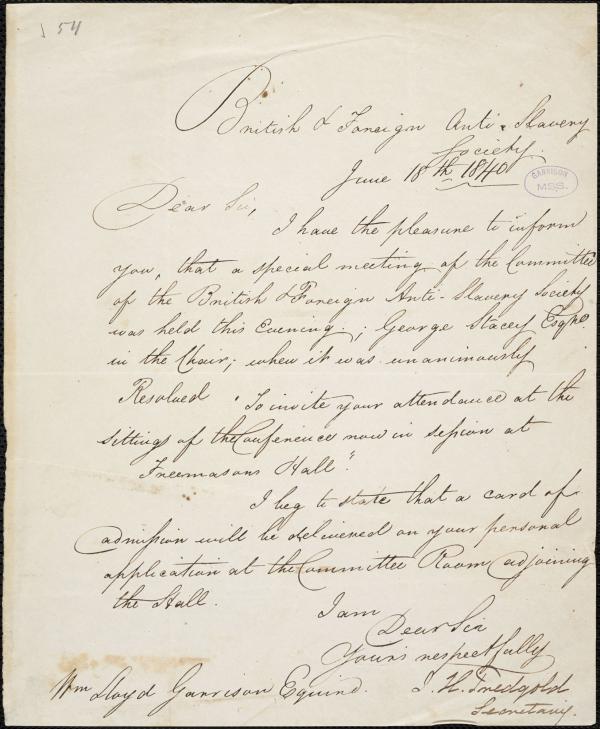 J 54
British & Foreign Anti-Slavery
Society.
June 18th 1840
GARRISON
MSS.
Dear Sir,
I have the pleasure to inform
you, that a special meeting of the Committee
of the British & Foreign Anti-Slavery Society
was held this Evening; George Stacey Esqre
in the Chair; when it was unanimously
Resolved "To invite your attendance at the
sittings of the Conference now in session at
Freemasons Hall".
I beg to state that a card of
admission will be delivered on your personal
application at the Committee Room adjoining
the Hall.
I am
Dear Sir
Yours respectfully
Wm Lloyd Garrison J. H. Tredgold
Secretary.